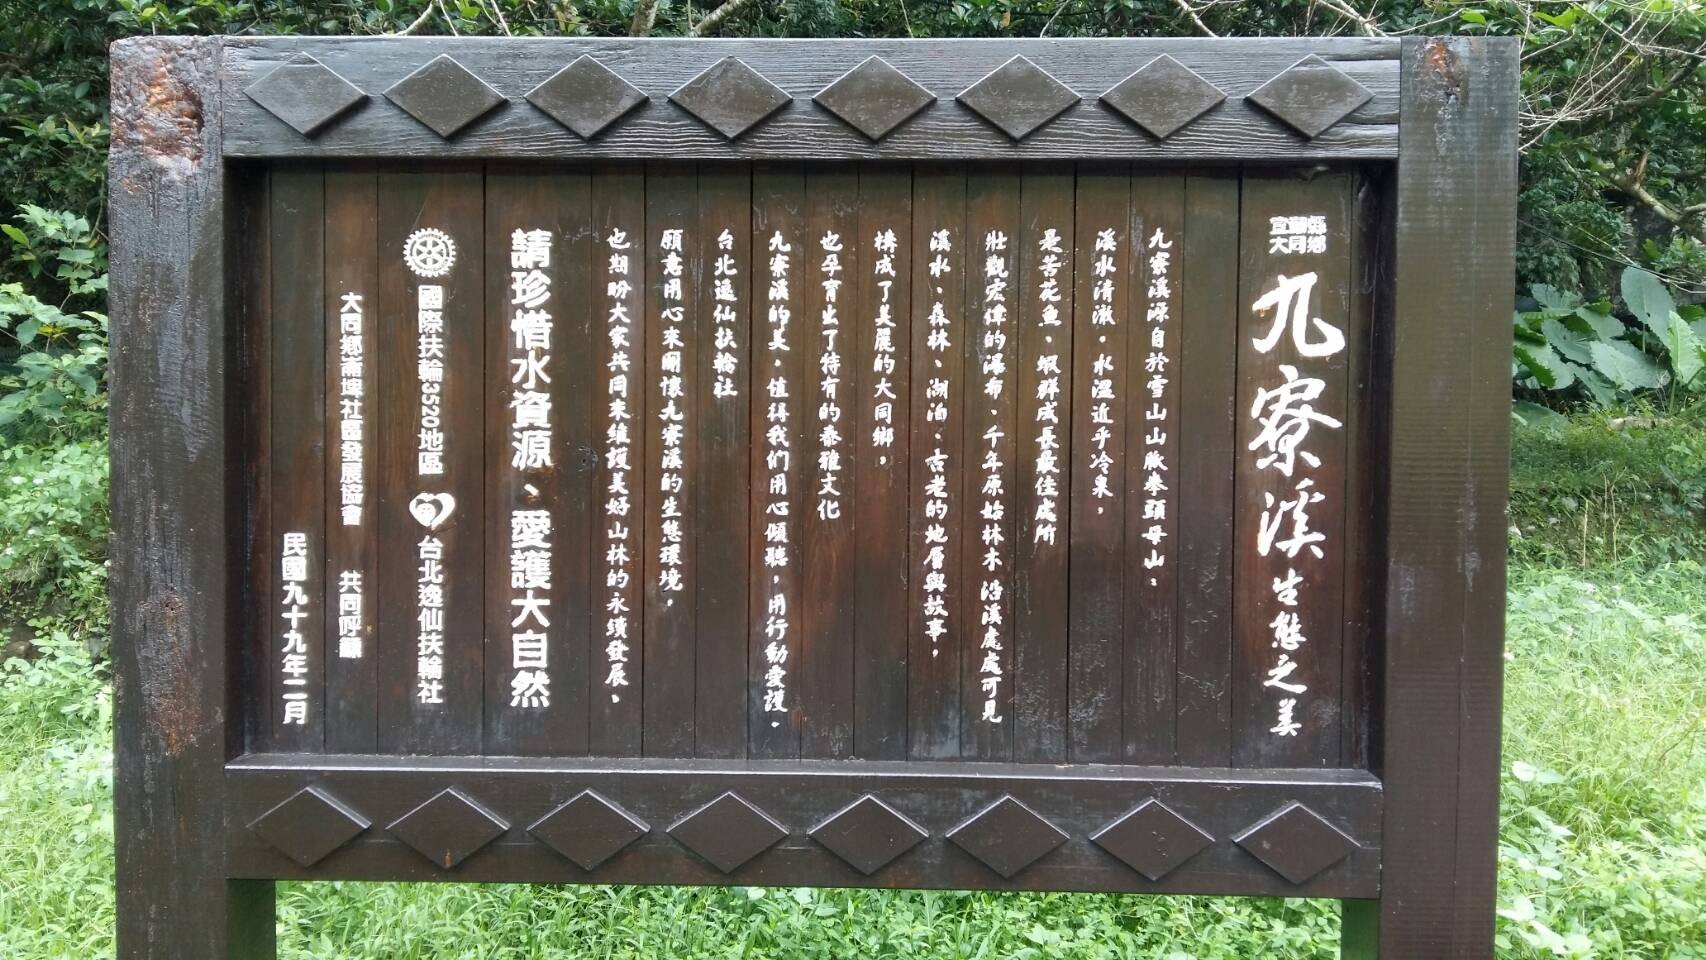 宜蘭縣
大同鄉
九寮溪生態之美
九寮溪源自於雪山山脈拳頭母山，
溪水清澈，水溫近乎冷泉，
是苦花魚、蝦群成長最佳處所
壯觀宏偉的瀑布、千年原始林木 沿溪處處可見
溪水、森林、湖泊、古老的地層與故事，
構成了美麗的大同鄉，
也孕育出了特有的泰雅文化
九寮溪的美，值得我们用心傾聽，用行動愛護。
台北逸仙扶輪社
願意用心來關懷九寮溪的生態環境，
也期盼大家共同來維護美好山林的永續發展。
請珍惜水資源、愛護大自然
國際扶輪3520地區 台北逸仙扶輪社
大同鄉崙埤社區發展協會 共同呼籲
民國九十九年二月